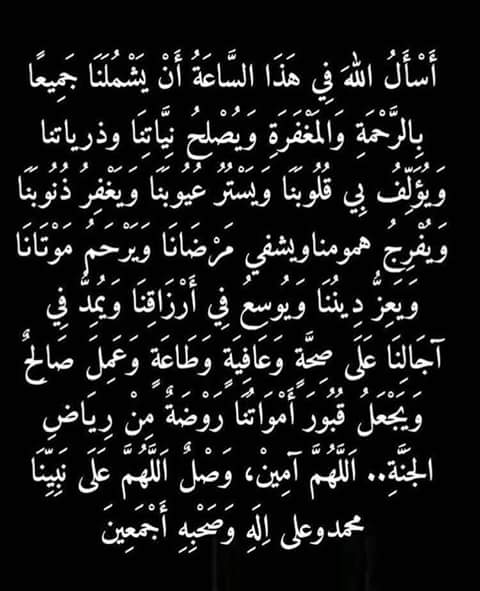 أَسْأَلُ اللهَ فِي هَذَا السَّاعَةُ أَنْ يَشْمُلَنَا جَمِيعًا
بِالرَّحْمَةِ وَالمَغْفَرَةِ وَيُصْلِحُ نِيَّاتِنَا وذرياتنا
وَيُؤَلِّفُ بِي قُلُوبَنَا وَيَسْتُرُ عُيُوبَنَا وَيَغْفِرُ ذُنُوبَنَا
وَيُفْرِجُ همومناويشفي مَرْضَانَا وَيَرْحَمُ مَوْتَانَا
وَيَعِزُّ دِينُنَا وَيُوسعُ فِي أَرْزَاقِنَا وَيُمِدُّ فِي
آجَالِنَا عَلَى صِحَّةٍ وَعَافِيَةٍ وَطَاعَةٍ وَعَمِلَ صَالِحٌ
وَيَجْعَلُ قُبُورَ أَمْوَاتُنَا رَوْضَةٌ مِنْ رِيَاضِ
الجَنَّةِ.. اَللَّهُمَّ آمِينْ، وَصْلٌ اَللَّهُمَّ عَلَى نَبِيِّنَا
محمدوعلى إِلَهِ وَصَحْبِهِ أَجْمَعِينَ